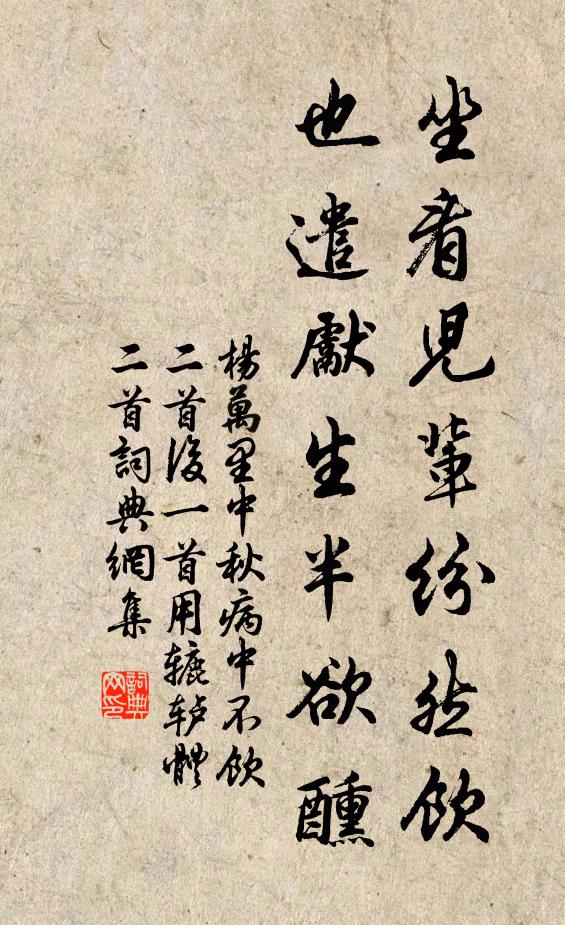 坐看兒輩紛然飲
也遣獻生半欲醺
楊萬里中秋病中不飲
二首後一首用辘轳體
二首詞典網集
詞典
网印